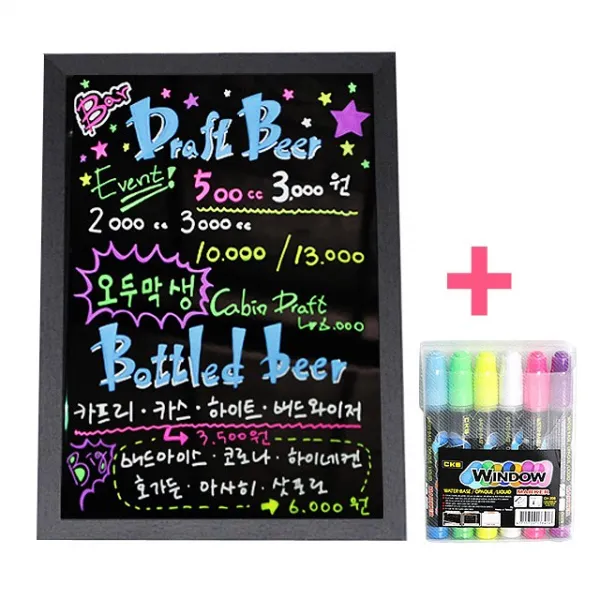 Bar
Draft Beer
Event!
500cc 3,000원
2000cc 3000cc
10.000 / 13.000
오두막생
Cabin Draft
6.000
Bottled beer
카프리 · 카스 · 하이트 · 버드와이저
3.500원
Big
버드아이스 · 코로나 · 하이네켄
호가든 · 아사히 · 삿포로
6.000원
CKS
WINDOW
MARKER
WATER BASE / OPAQUE / LIQUID